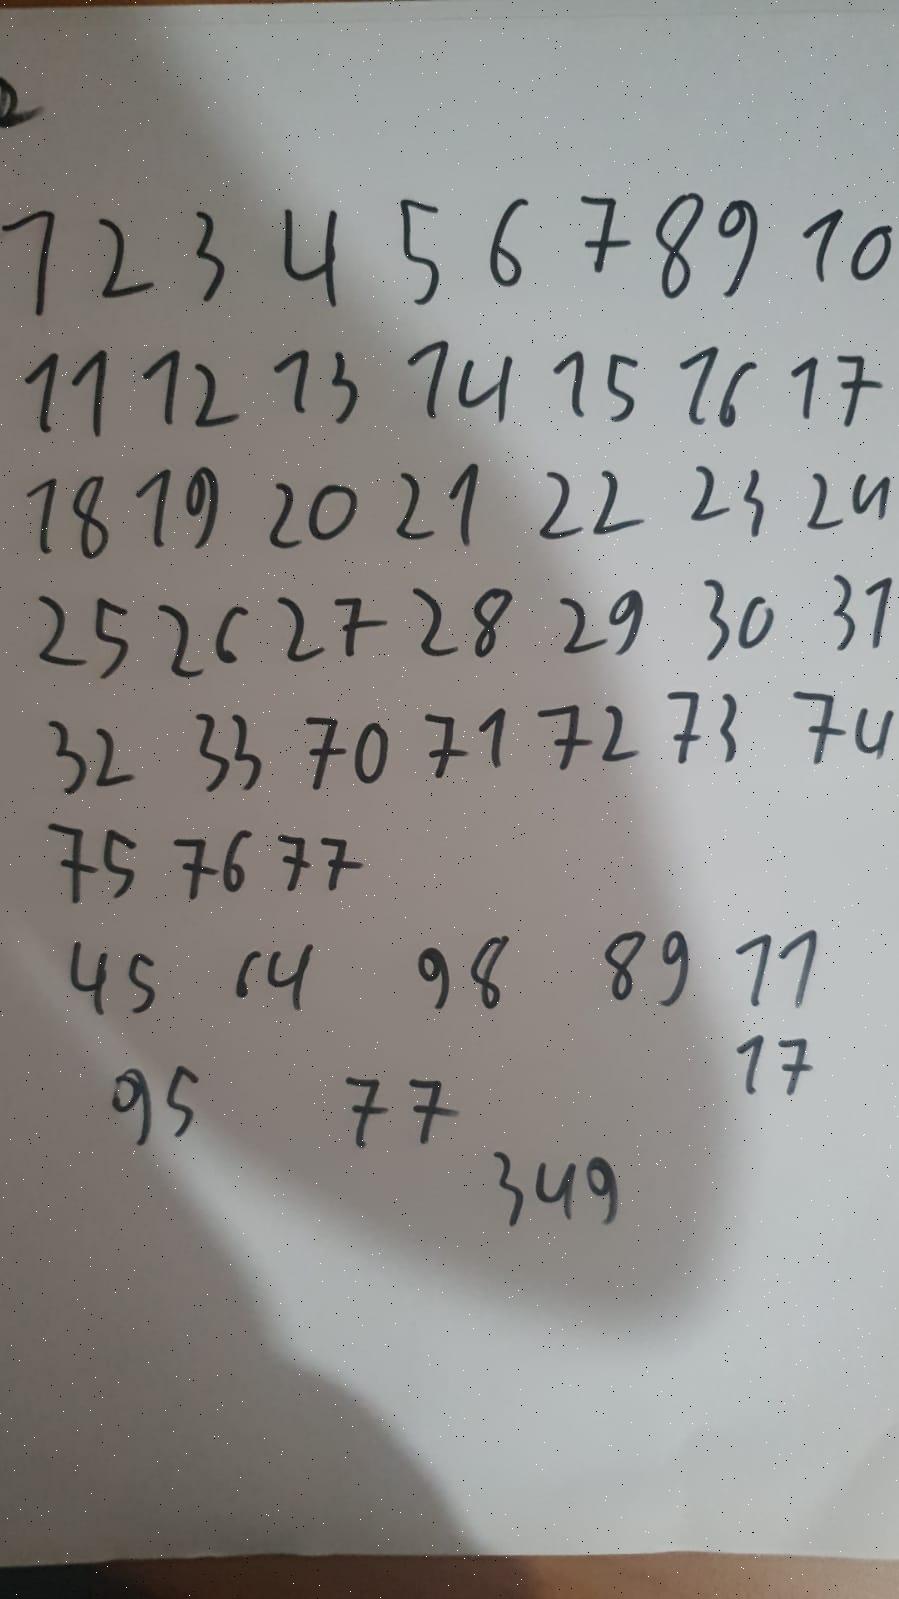 1 2 3 4 5 6 7 8 9 10
11 12 13 14 15 16 17
18 19 20 21 22 23 24
25 26 27 28 29 30 31
32 33 70 71 72 73 74
75 76 77
45 64 98 89 11
17
95 77
349